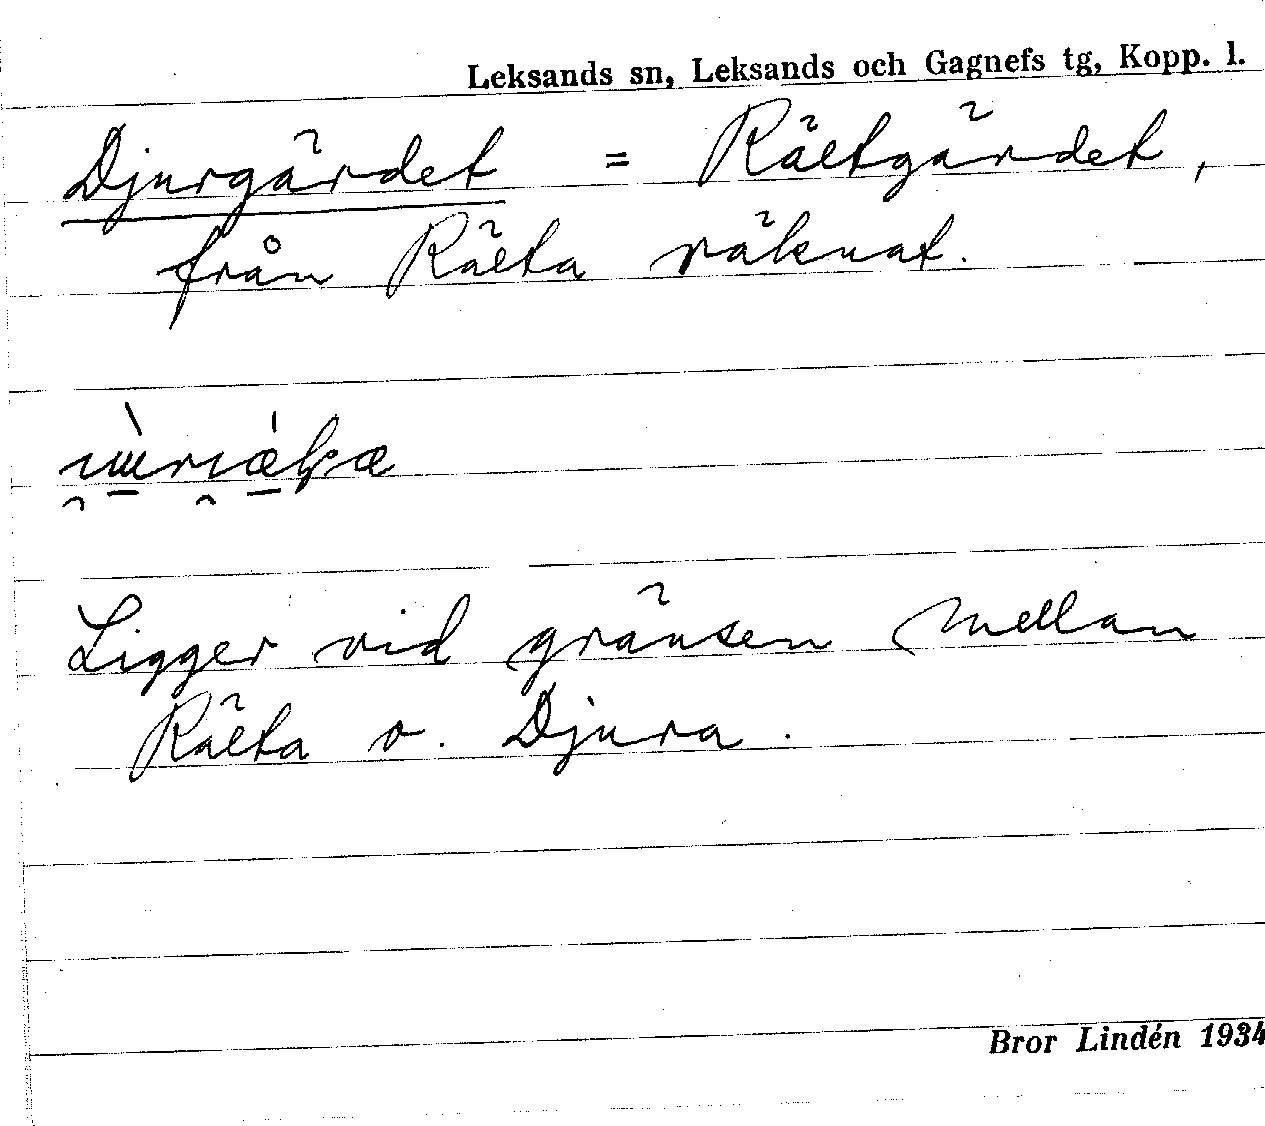 Leksands sn, Leksands och Gagnefs tg, Kopp. l.
Djurgärdet = Rältgärdet,
från Rälta räknat.
Ligger vid gränsen mellan
Rälta o. Djura.
Bror Lindén 1934